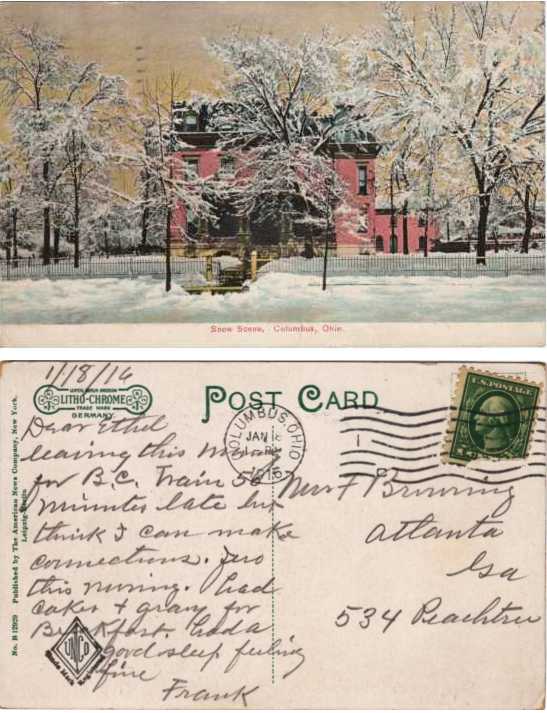 Snow Scene, Columbus, Ohio.
1/18/16
LITHO-CHROME
TRADE MARK
GERMANY.
POST CARD
COLUMBUS, OHIO
JAN
1916
U.S. POSTAGE
Dear Ethel
leaving this
for B.C. Train 50
minutes late but
think I can make
connections. Zero
this morning. had
cakes + gravy for
Breakfast. had a
good sleep feeling
fine
Frank
F Browning
Atlanta
Ga
534 Peachtree
No. B 12929 Published by The American News Company, New York.
Leipzig
UNCO